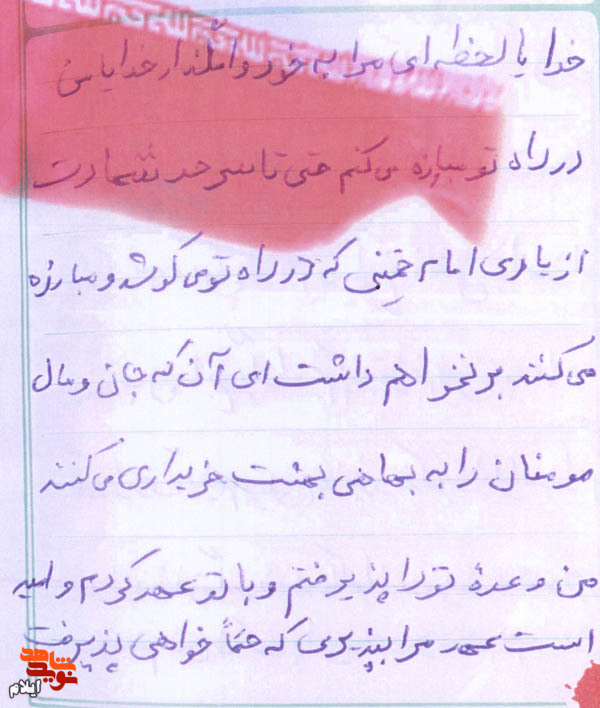 خدا یا لحظه ای مرا به خود وامگذار خدایا من
در راه تو مبارزه می کنم حتی تا سر حد شهادت
از یاری امام خمینی که در راه تو می کوشد و مبارزه
می کند بر نخواهم داشت ای آن که جان و مال
مومنان را به بهای بهشت خریداری می کنند
من وعدهٔ تو را پذیرفتم و با تو عهد کردم و امید
است عهد مرا بپذیری که حتماً خواهی پذیرفت
نوید شاهد
ایلام